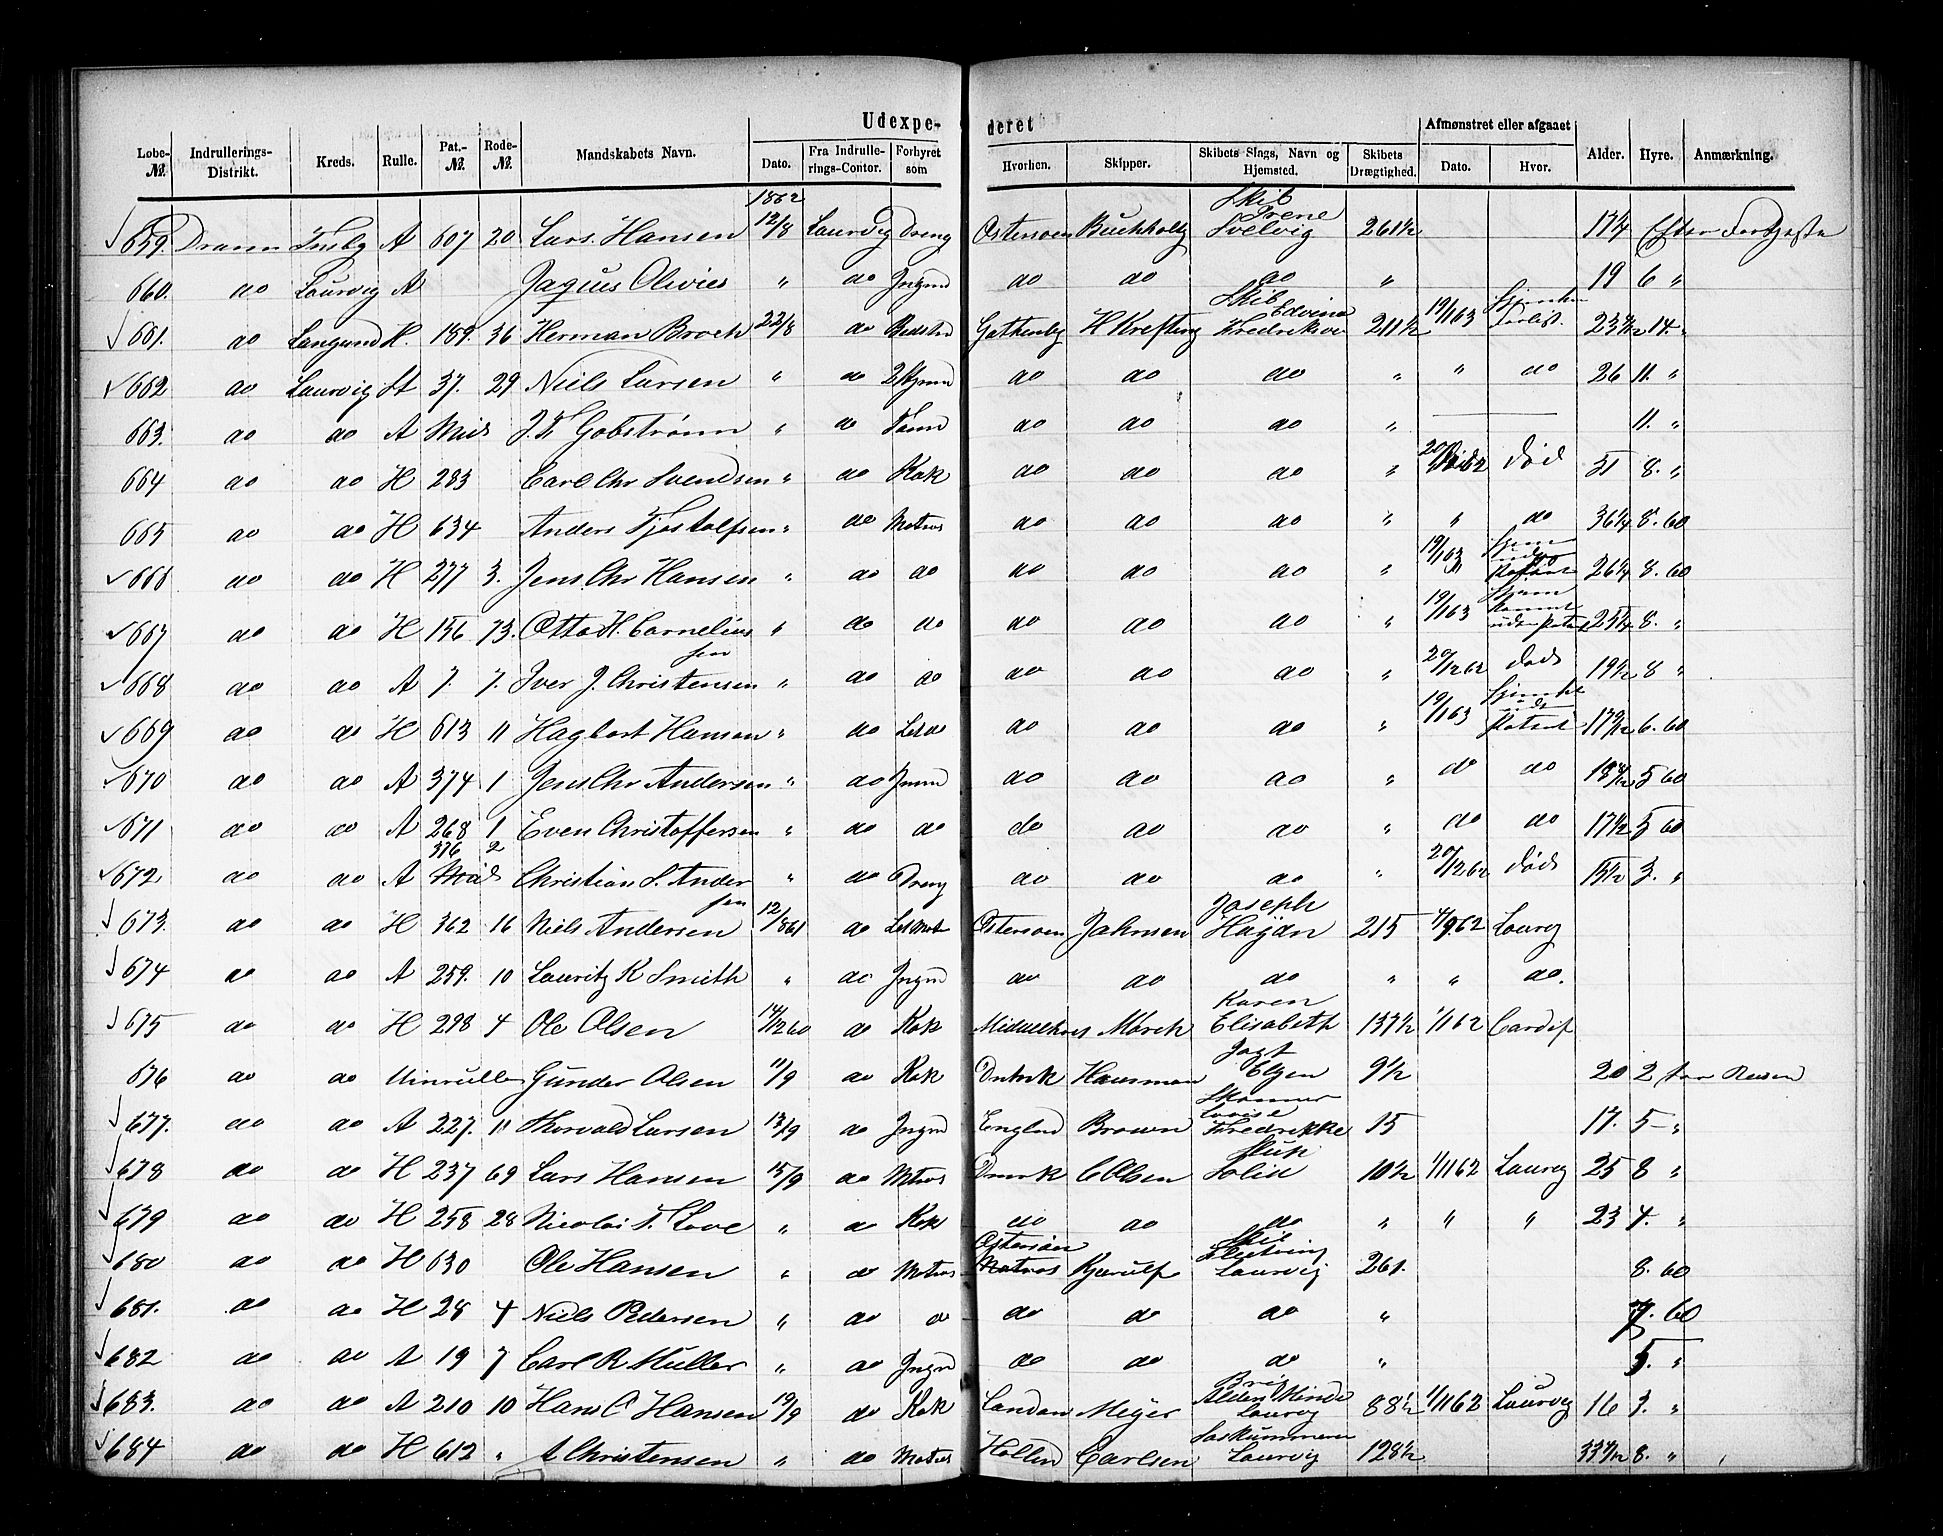 Udexpe- deret
Løbe-№. Indrullerings-Distrikt. Kreds. Rulle. Pat.-№. Rode-№. Mandskabets Navn. Dato. Fra Indrullerings-Contor. Forhyret som Hvorhen. Skipper. Skibets Sings, Navn og Hjemsted. Skibets Drægtighed. Afmønstret eller afgaaet Dato. Hvor. Alder. Hyre. Anmærkning.
1862
659. Dramm A 607 20 Lars Hansen 12/8 Laurvig Dreng Østersøen Buchholtz Skib Irene Svelvig 261½ 17¼ Efter Fortjeste
660. do Laurvig A Jaqués Olivies " do Jngmd do do do " 19 6 "
661. do Langsund H. 189. 36 Herman Broch 22/8 do Gothenbg H Krefting Skib Edvina Fredriksv 211½ 19/1 63 Forlist. 23 14. "
662 do Laurvig H 37. 29 Niels Larsen " do do do do " " do 26 11. "
663. do do A J. F. Gobstrømm " do Tømm do do do " 11. "
664 do do H 283 Carl Chr Svendsen " do Kok do do do " Død 51 8. "
665 do do H 634 Anders Tjøstolfsen " do Matros do do do " " do 36¼ 8. 60
666 do do H 277 3. Jens Chr Hansen " do do do do do " 19/1 63 26¼ 8. 60
667 do do H 156 73. Otto H. Cornelius sen " do do do do do " 19/1 63 uden patent 25¼ 8. "
668 do do A 7. 7. Iver J. Christensen " do do do do do " 20/12 62 Død 19½ 8 "
669 do do H 613 11 Hagbart Hansen " do Letdo do do do " 19/1 63 patent 17 6. 60
670 do do A 374 1 Jens Chr Andersen " do Jnmd do do do " do do 18 5 60
671 do do A 268 1 Even Christoffersen " do do do do do " do do 17½ 5 60
672. do do A 316 2 Christian S. Ander sen " do Dreng do do do " 20/12 62 Død 15½ 3. "
673. do do H 362 16 Niels Andersen 12/8 61 do LetMat Østersøen Jahnsen Joseph Haydn 215 4/9 62 Laurvg
674 do do A 259. 10 Lauritz K Smith " do Jngmd do do do " " do.
675 do do H 298 4 Ole Olsen 14/12 60 do Kok Mørch Karen Elisabeth 137½ 1/1 62 Cardif
676 do do Uinrulle Gunder Olsen 11/9 do Kok Hausman Jagt Elzen 9½ 20 2 for Reisen
677. do do A 227. 11 Thorvald Larsen 13/9 do Jngmd England Brown Lovise Fredrikke 15 17. 5 "
678 do do H 237 69 Lars Hansen 15/9 do Mtros C Olsen Solid 10½ 1/11 62 Laurvg 25 8 "
679 do do H 258 28 Nicolai T. Love " do Kok do do do " " " 23 4. "
680 do do H 630 Ole Hansen " do Mtros Østersøen Matros Kjerulf Skib Laurvig 261. 8. 60
681. do do H 28 4 Niels Pedersen " do do do do do " 7. 60
682 do do A 19 7 Carl R Muller " do Jngmd do do do " 5. "
683. do do A 210 10 Hans C Hansen 19/9 do Kok London Meyer Brig Alders Minde Laurvg 88½ 1/11 62 Laurvig 16 3. "
684 do do H 612 " A Christensen " do Matros Carlsen Laurvig 128½ 33 8. "